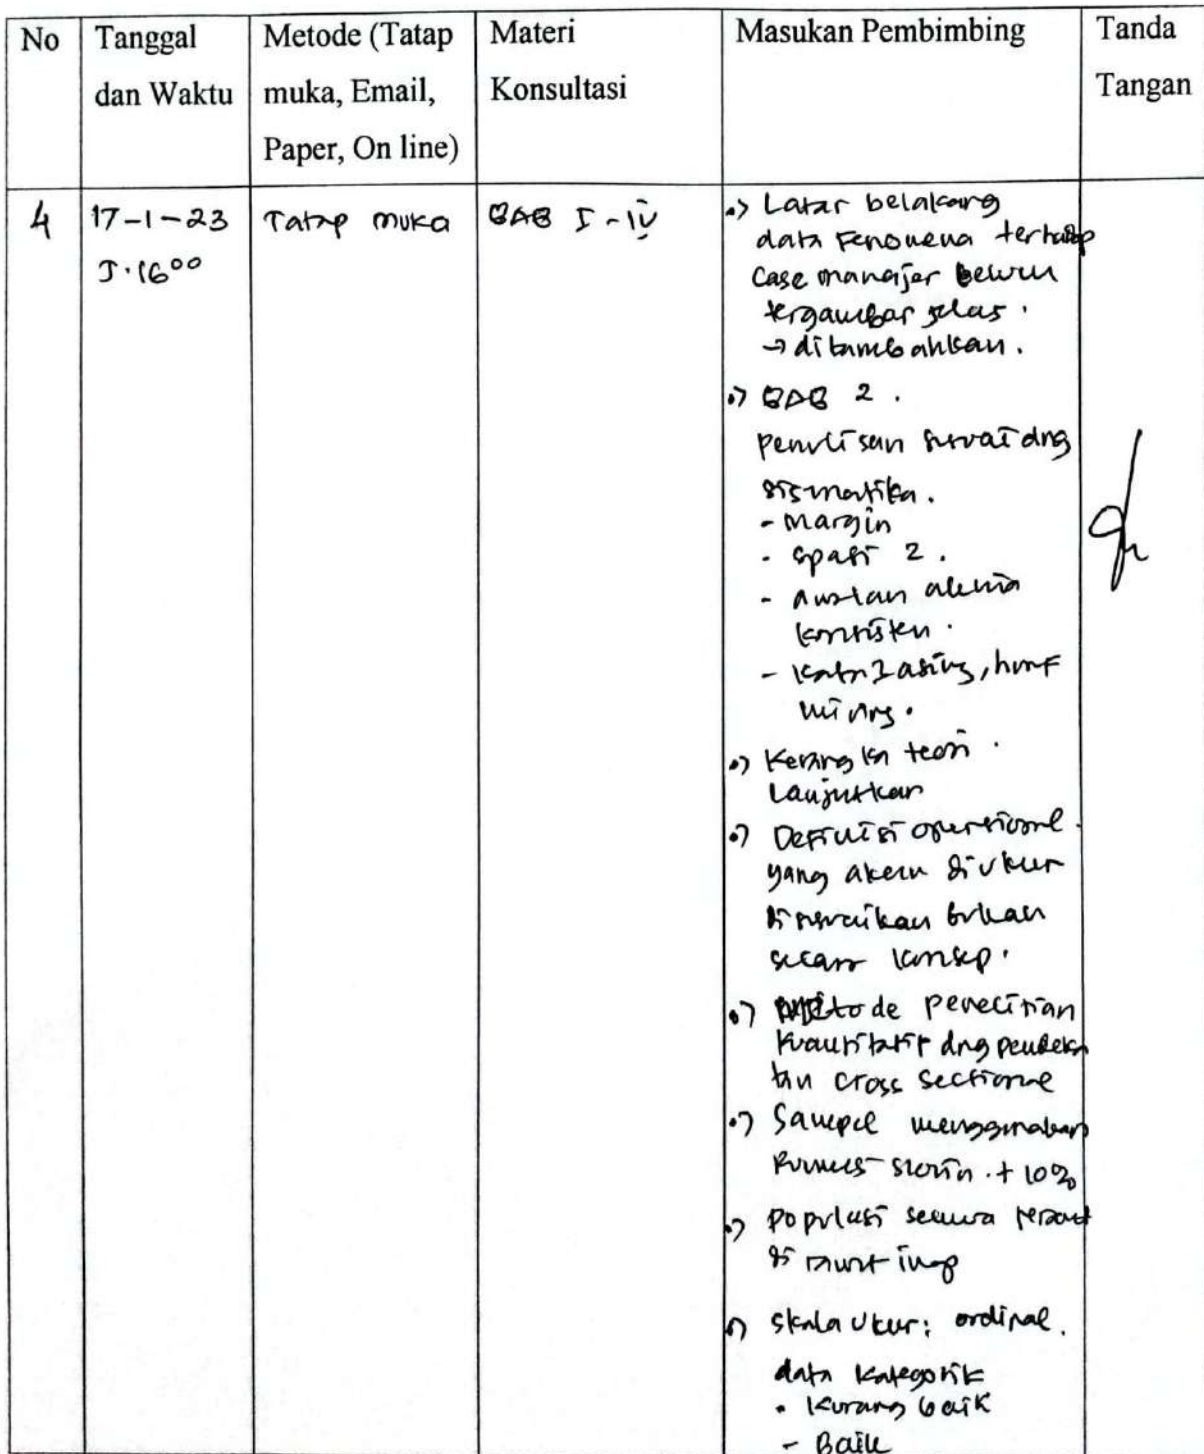 No Tanggal Metode (Tatap Materi Masukan Pembimbing Tanda
dan Waktu muka, Email, Konsultasi Tangan
Paper, On line)
4 17-1-23 Tatap muka BAB I - IV
J. 16⁰⁰
•) Latar belakang
data Fenomena terhadap
Case manajer belum
tergambar jelas.
→ ditambahkan.
•) BAB 2.
penulisan sesuai dng
sismatika.
- margin
- spasi 2.
- awalan alenia
konsisten.
- Kata2 asing, huruf
miring.
•) Kerangka teori.
Lanjutkan
•) Definisi operasional
yang akan diukur
disesuaikan bukan
secara konsep.
•) Metode penelitian
kuantitatif dng pendeka
tan cross sectional
•) Sampel menggunakan
rumus slovin. + 10%
•) populasi semua perawat
di rawat inap
•) skala ukur: ordinal.
data kategorik
• Kurang baik
- Baik